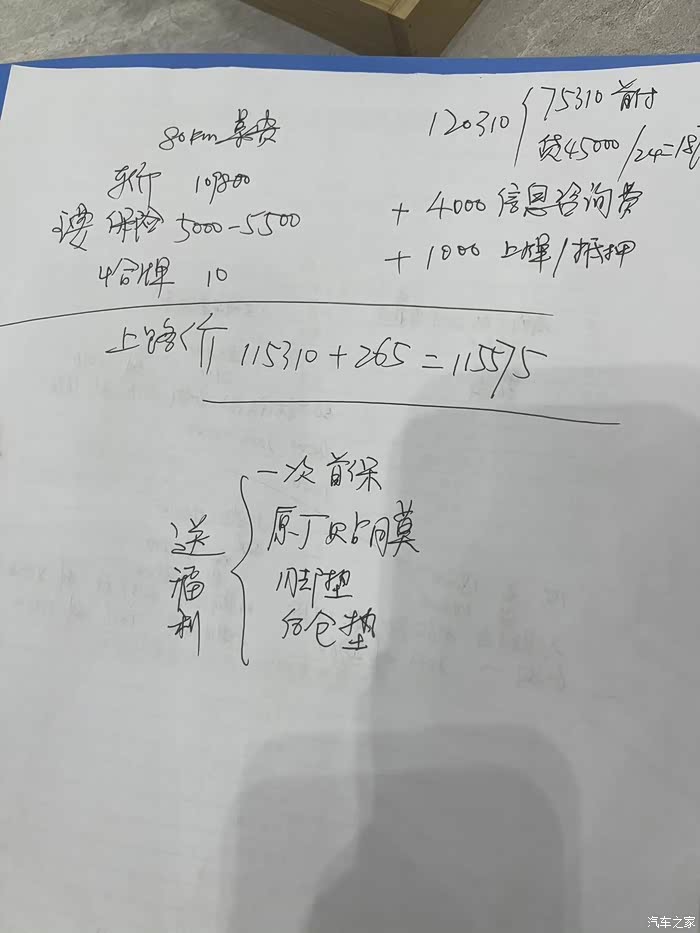 80km 尊贵
车价 109800
保险 5000-5500
牌 10
上路价 115310+265=115575
120310
75310 首付
贷45000/24=18
+ 4000 信息咨询费
+ 1000 上牌/抵押
送福利
一次首保
原厂贴膜
脚垫
后仓垫
汽车之家